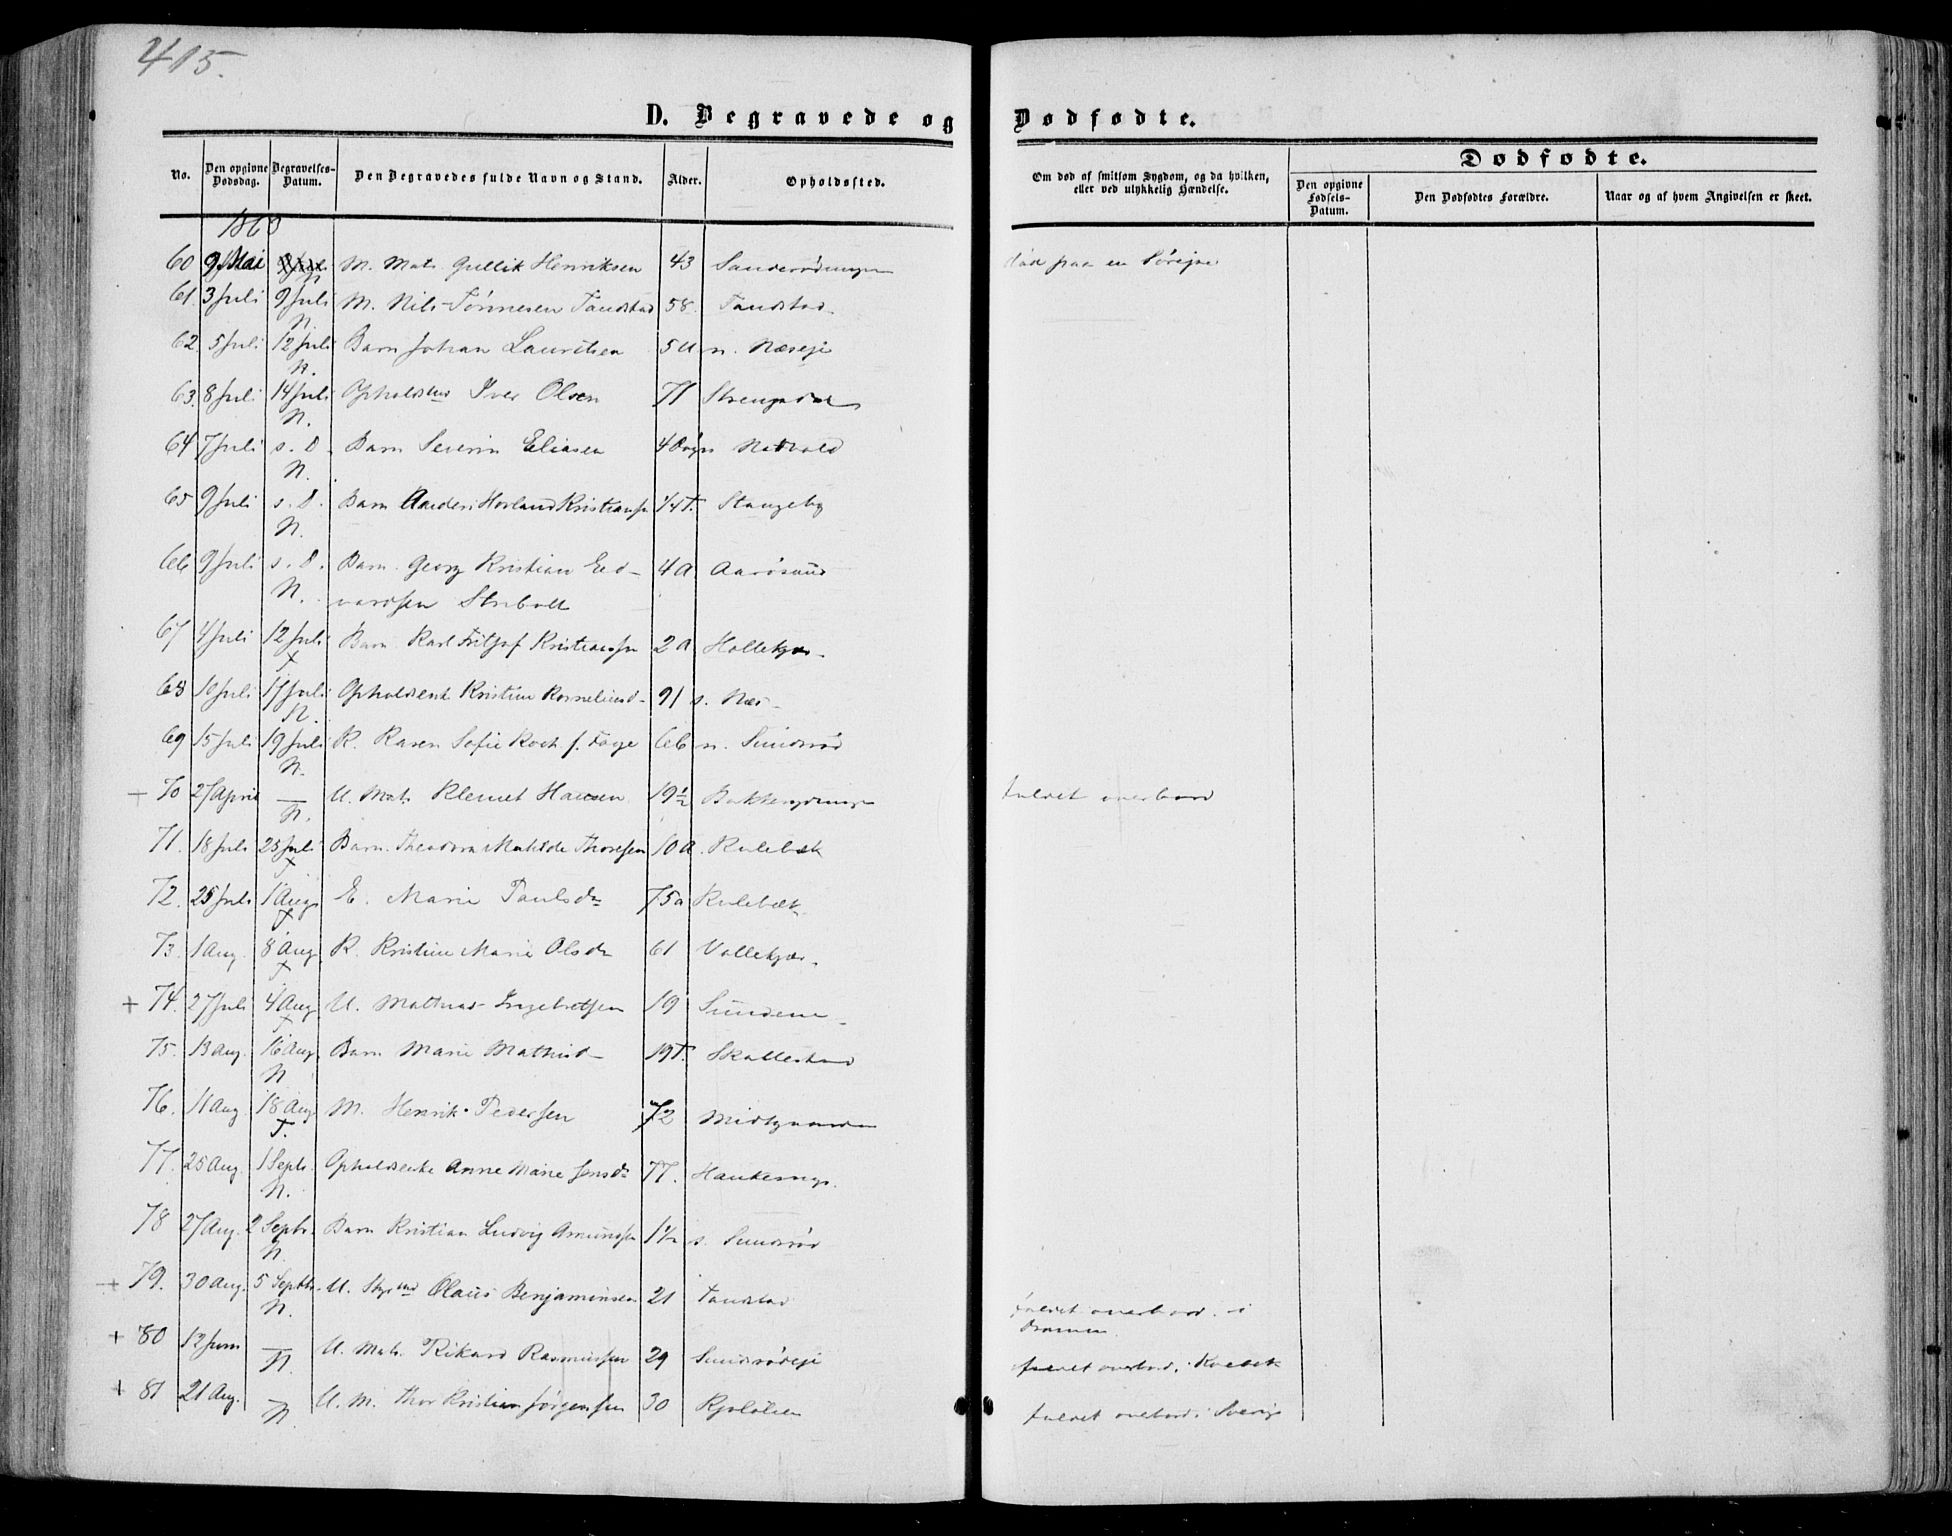 415.
D. Begravede og Dødfødte.
No. Den opgivne Dødsdag. Begravelses-Datum. Den Begravedes fulde Navn og Stand. Alder. Opholdssted. Om død af smitsom Sygdom, og da hvilken, eller ved ulykkelig Hændelse.
Dødfødte.
Den opgivne Fødsels-Datum. Den Dødfødtes Forældre. Naar og af hvem Angivelsen er skeet.
186
60 9 Mai N M. Mat. Gullik Henriksen 43 død paa en Sørejse
61. 3 Juli 9 Juli N. M. Nils Tønnesen Tandstad 58. Tandstad.
62. 5 Juli 12 Juli N. Barn Johan Lauritsen 5 U n. Næseje
63. 8 Juli 14 Juli N. Opholdsm Iver Olsen 71 Strengsdal
64 7 Juli s. D. N. Barn Severin Eliasen 4 Døgn Natvold
65 9 Juli s. D. N. Barn Anders Hovland Kristiansn 14 T. Stangeby
66 9 Juli s. D. N. Barn Georg Kristian Ed-
vardsen Stribolt 4 A Aarøsund
67 4 Juli 12 Juli T Barn Karl Fritjof Kristiansen 2 A Hollekjær.
68 10 Juli 17 Juli N. Opholdsenk Kristine Korneliusd. 91 s. Næs.
69 15 Juli 19 Juli N. K. Karen Sofie Koch f. Foyn 66 n. Sundrød
70 27 April — N. U. Mat. Klemet Hansen 19½ faldet overbord
71. 18 Juli 25 Juli T Barn Theodora Matilde Thoresen 10 A. Rulebæk
72. 25 Juli 1 Aug T E. Marie Paulsdr 75 a Rulebæk.
73. 1 Aug. 8 Aug T K. Kristine Marie Olsdr 61 Vollekjær.
+ 74. 27 Juli 4 Aug T U. Mathias Ingebretsen 19 Sundene
75. 13 Aug. 16 Aug. N Barn Marie Mathisd. 19 T. Skallestad
76. 11 Aug 18 Aug T. M. Henrik Pedersen 72 Midtgaarden
77. 25 Aug. 1 Septr. N. Opholdsenke Anne Marie Jensdr 77. Haukemyr.
78 27 Aug. 2 Septr. N. Barn Kristian Ludvig Amundsen 1½ s. Sundrød
+ 79. 30 Aug. 5 Septbr. N. U. Styrmd Olaus Benjaminsen 21 Tandstad faldet overbord i
Drammen.
+ 80 12 Juni — N. U. Mat. Rikard Rasmussen 29 Sundrødeje faldet overbord i Kvebek
+ 81 21 Aug. — N U. M. Thor Kristian Jørgensen 30 Kjølølien faldet overbord i Sverig